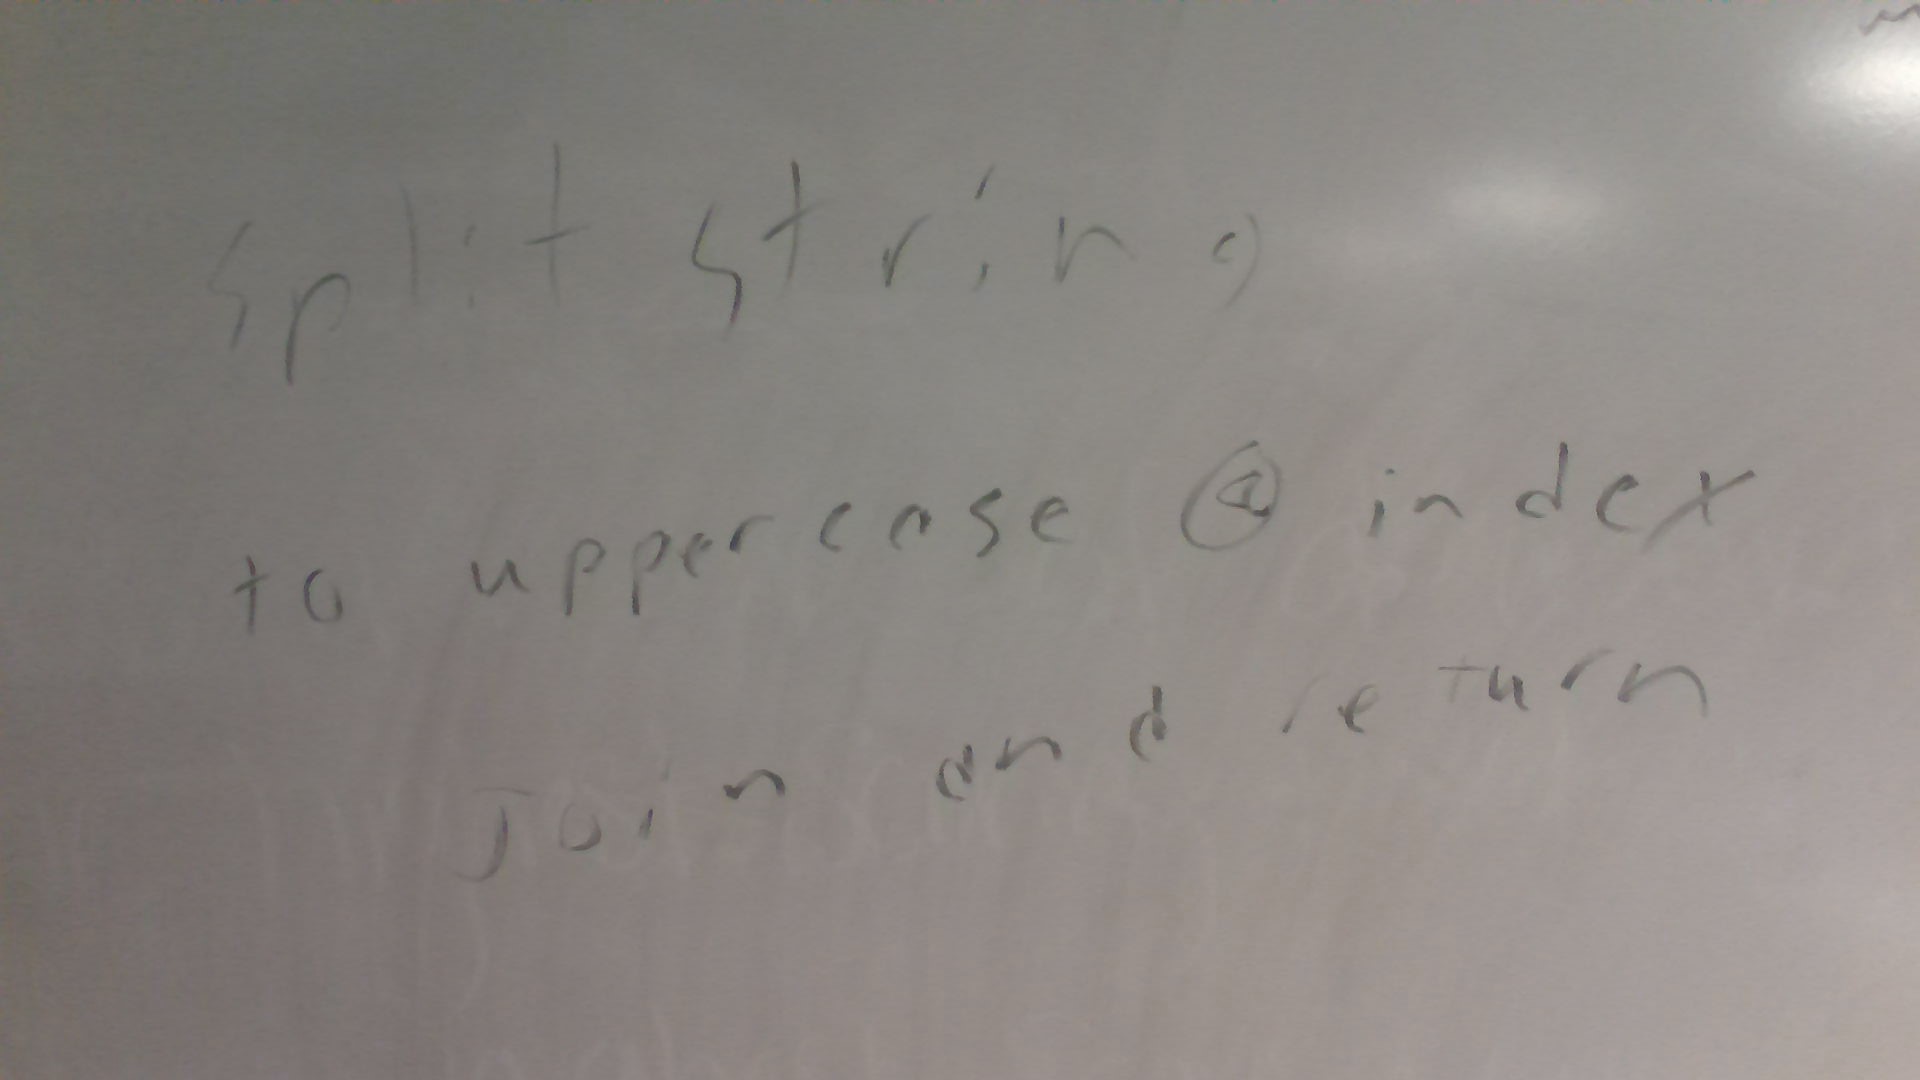 split string
to uppercase @ index
Join and return